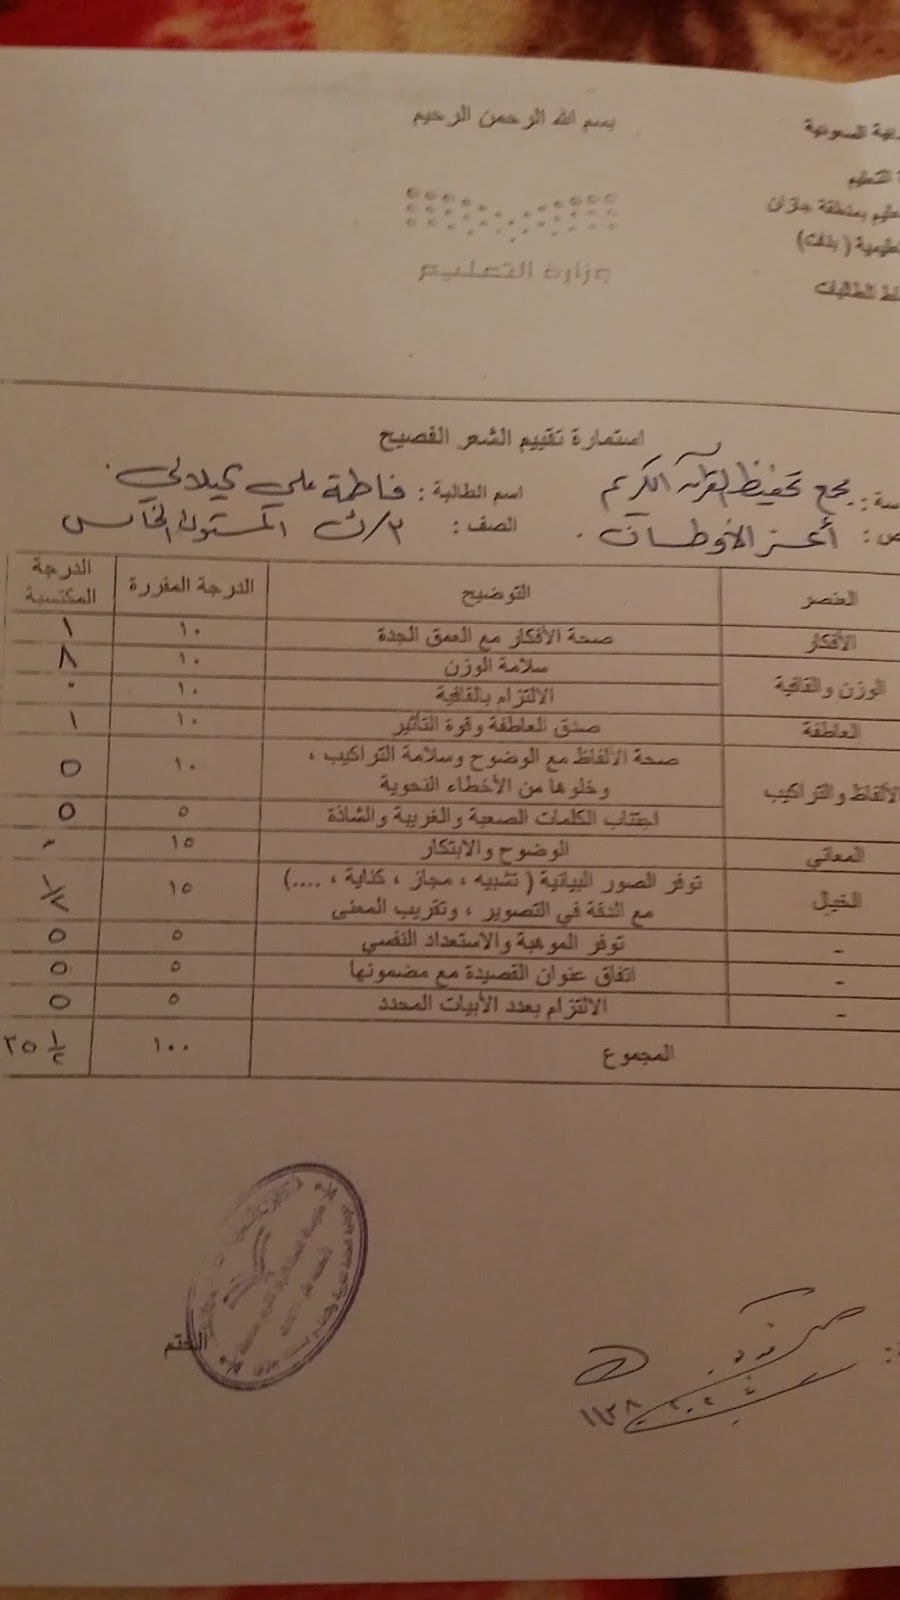 بسم الله الرحمن الرحيم
السعودية
التعليم
بمنطقة جازان
(بنات)
الطالبات
وزارة التعليم
استمارة تقييم الشعر الفصيح
مجمع تحفيظ القرآن الكريم اسم الطالبة : فاطمة علي
أعز الأوطان . الصف : ٣/ث المستوى الخامس
العنصر التوضيح الدرجة المقررة الدرجة المكتسبة
الأفكار صحة الأفكار مع العمق الجدة ١٠ ١
الوزن والقافية سلامة الوزن ١٠ ٨
الالتزام بالقافية ١٠ ٠
العاطفة صدق العاطفة وقوة التأثير ١٠ ١
الألفاظ والتراكيب صحة الألفاظ مع الوضوح وسلامة التراكيب ،
وخلوها من الأخطاء النحوية ١٠ ٥
اجتناب الكلمات الصعبة والغريبة والشاذة ٥ ٥
المعاني الوضوح والابتكار ١٥
الخيال توفر الصور البيانية ( تشبيه ، مجاز ، كناية ، ....)
مع الدقة في التصوير ، وتقريب المعنى ١٥ ١/٢
- توفر الموهبة والاستعداد النفسي ٥ ٥
- اتفاق عنوان القصيدة مع مضمونها ٥ ٥
- الالتزام بعدد الأبيات المحدد ٥ ٥
المجموع ١٠٠ ٣٥ ١/٢
الختم